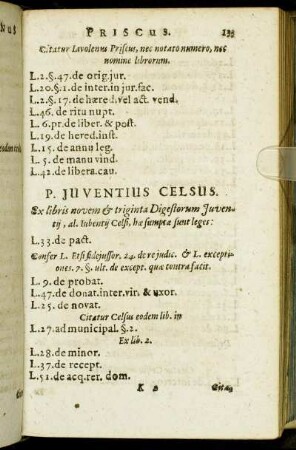 PRISCUS.
Citatur Iavolenus Priscus, nec notato numero, nec
nomine librorum.
L.2.§.47.de orig.jur.
L.20.§.1.de inter.in jur.fac.
L.2.§.17.de hæred.vel act.vend.
L.46. de ritu nupt.
L.6.pr.de liber. & post.
L.19.de hered.inst.
L.15.de annu leg.
L.5. de manu vind.
L.42.de libera.cau.
P. JUVENTIUS CELSUS.
Ex libris novem & triginta Digestorum Juven-
tij, al. Iubentij Celsi, hæ sumptæ sunt leges:
L.33.de pact.
Confer L. Etsi fidejussor. 24. de re judic. & L. excepti-
ones. 7. §. ult. de except. quæ contra facit.
L.9.de probat.
L.47.de donat.inter.vir. & uxor.
L.25. de novat.
Citatur Celsus eodem lib. in
L.27.ad municipal.§.2.
Ex lib. 2.
L.28.de minor.
L.37.de recept.
L.51.de acq.rer. dom.
K